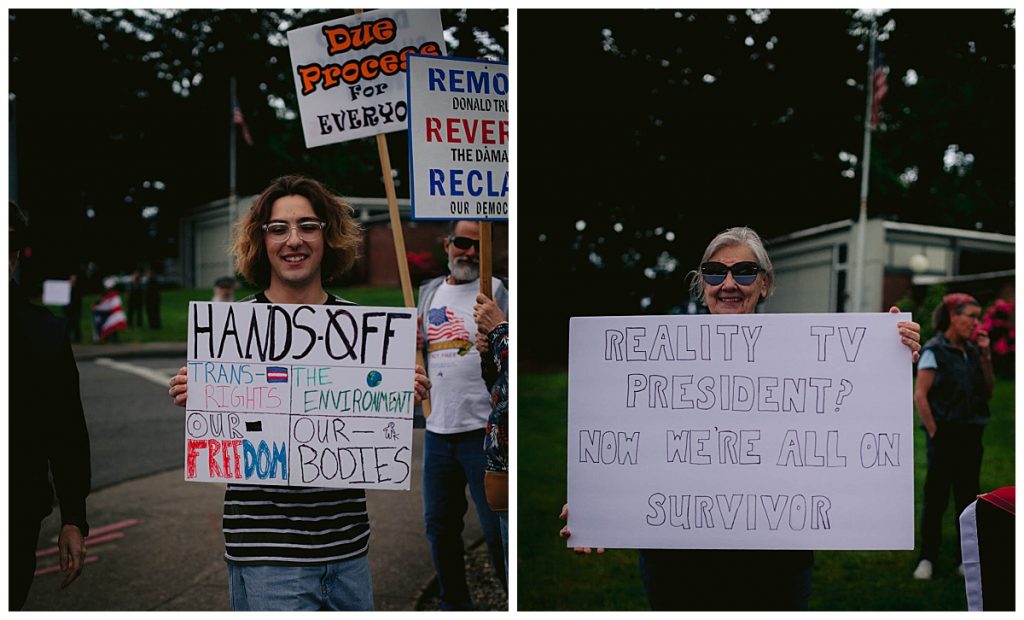 Due
Process
For
REMO
DONALD
REVER
THE DAMA
RECLA
OUR DEMOC
HANDS-OFF
TRANS-
RIGHTS
THE
ENVIRONMENT
OUR-
FREEDOM
OUR-
BODIES
REALITY TV
PRESIDENT?
NOW WE'RE ALL ON
SURVIVOR